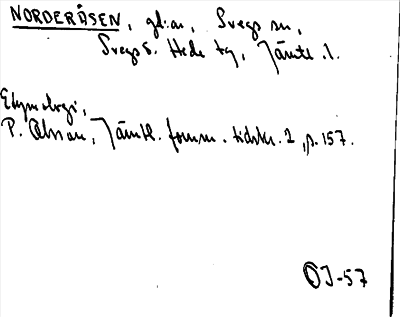 NORDERÅSEN, gl:an, Svegs sn,
Svegs o. Hede tg, Jämtl. l.
Etymologi,
P. Olsson, Jämtl. fornm. tidskr. 2, p. 157.
OJ-57